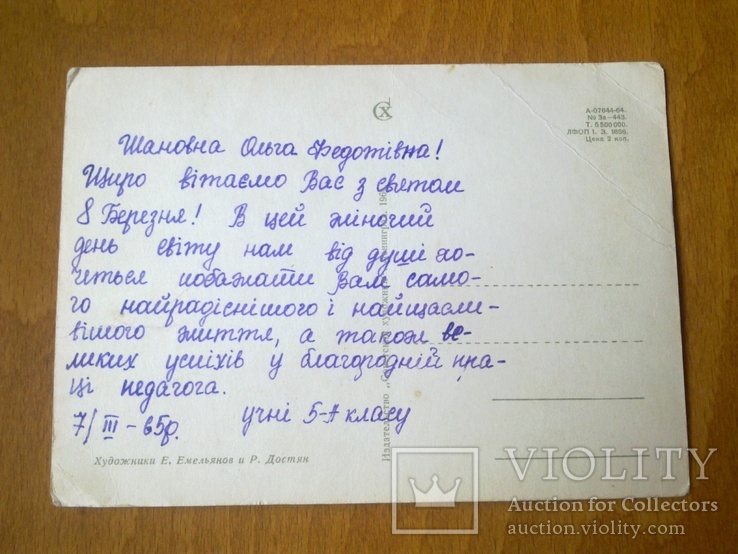 СХ
А-07844-64.
№ Зв-443.
Т. 5 500 000.
ЛФОП 1. З. 1656.
Цена 2 коп.
Шановна Ольга Федотівна!
Щиро вітаємо Вас з святом
8 Березня! В цей жіночий
день світу нам від душі хо-
четься побажати Вам само-
го найрадіснішого і найщасли-
вішого життя, а також ве-
ликих успіхів у благородній пра-
ці педагога.
7/III-65р. учні 5-А класу
Издательство „Советский художник"
Художники Е. Емельянов и Р. Достян
VIOLITY
Auction for Collectors
auction.violity.com